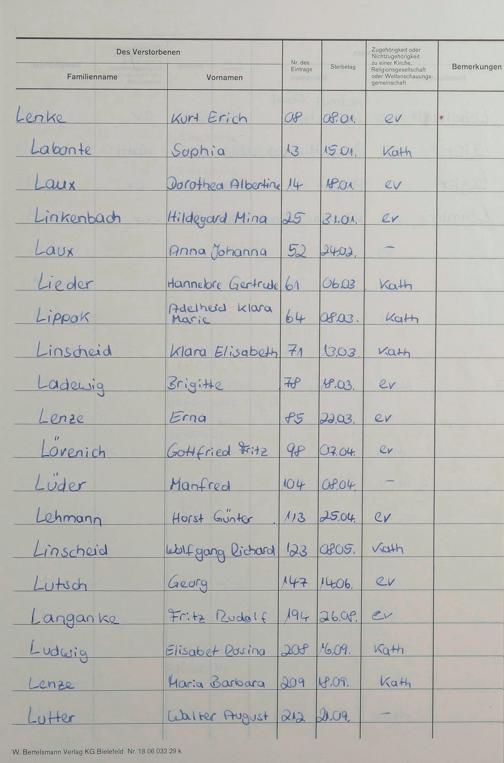 Des Verstorbenen
Familienname Vornamen Nr. des Eintrags Sterbetag Zugehörigkeit oder Nichtzugehörigkeit zu einer Kirche, Religionsgesellschaft oder Weltanschauungsgemeinschaft Bemerkungen
Lenke Kurt Erich 08 08.01. ev
Labonte Sophia 13 15.01. Kath
Laux Dorothea Albertine 14 18.01. ev
Linkenbach Hildegard Mina 25 31.01. ev
Laux Anna Johanna 52 24.02. –
Lieder Hannebre Gertrude 61 06.03 Kath
Lippok Adelheid Klara Marie 64 08.03. Kath
Linscheid Klara Elisabeth 71 13.03. Kath
Ladewig Brigitte 78 18.03. ev
Lenze Erna 85 22.03. ev
Lövenich Gottfried Fritz 98 07.04. ev
Lüder Manfred 104 08.04. –
Lehmann Horst Günter 113 25.04. ev
Linscheid Wolfgang Richard 123 08.05. Kath
Lutsch Georg 147 14.06. ev
Langanke Fritz Rudolf 194 26.08. ev
Ludwig Elisabet Rosina 208 16.09. Kath
Lenze Maria Barbara 209 18.09. Kath
Lutter Walter August 212 21.09. –
W. Bertelsmann Verlag KG Bielefeld Nr. 18 06 032 29 k